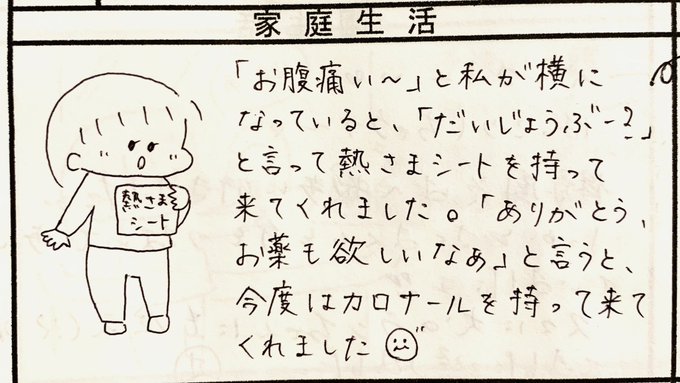 家庭生活
「お腹痛い〜」と私が横に
なっていると、「だいじょうぶー?」
と言って熱さまシートを持って
来てくれました。「ありがとう、
お薬も欲しいなぁ」と言うと、
今度はカロナールを持って来て
くれました
熱さま
シート